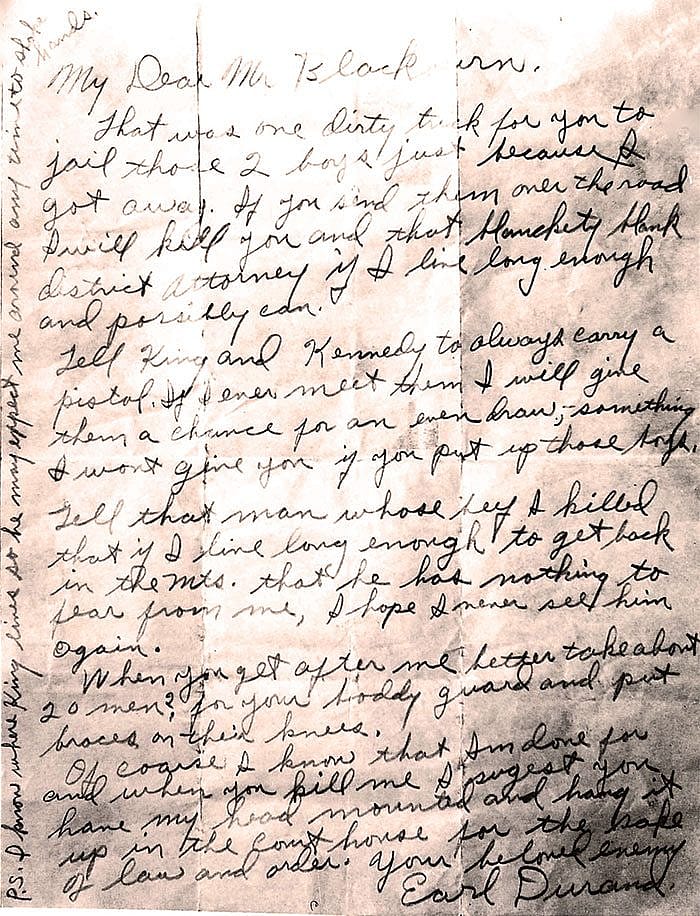 My Dear Mr Blackburn.
That was one dirty trick for you to
jail those 2 boys just because I
got away. If you send them over the road
I will kill you and that blanckety blank
district Attorney if I live long enough
and porsibly can.
Tell King and Kennedy to always carry a
pistol. If I ever meet them I will give
them a chance for an even draw, - something
I wont give you if you put up those boys.
Tell that man whose beef I killed
that if I live long enough to get back
in the Mts. that he has nothing to
fear from me, I hope I never see him
again.
When you get after me better take about
20 men? for your boddy guard and put
braces on their knees.
Of cource I know that I'm done for
and when you kill me I sugest you
have my head mounted and hang it
up in the court house for the sake
of law and order. Your beloved enemy
Earl Durand.
P.S. I know where King lives so he may expect me around any time to shake
hands.